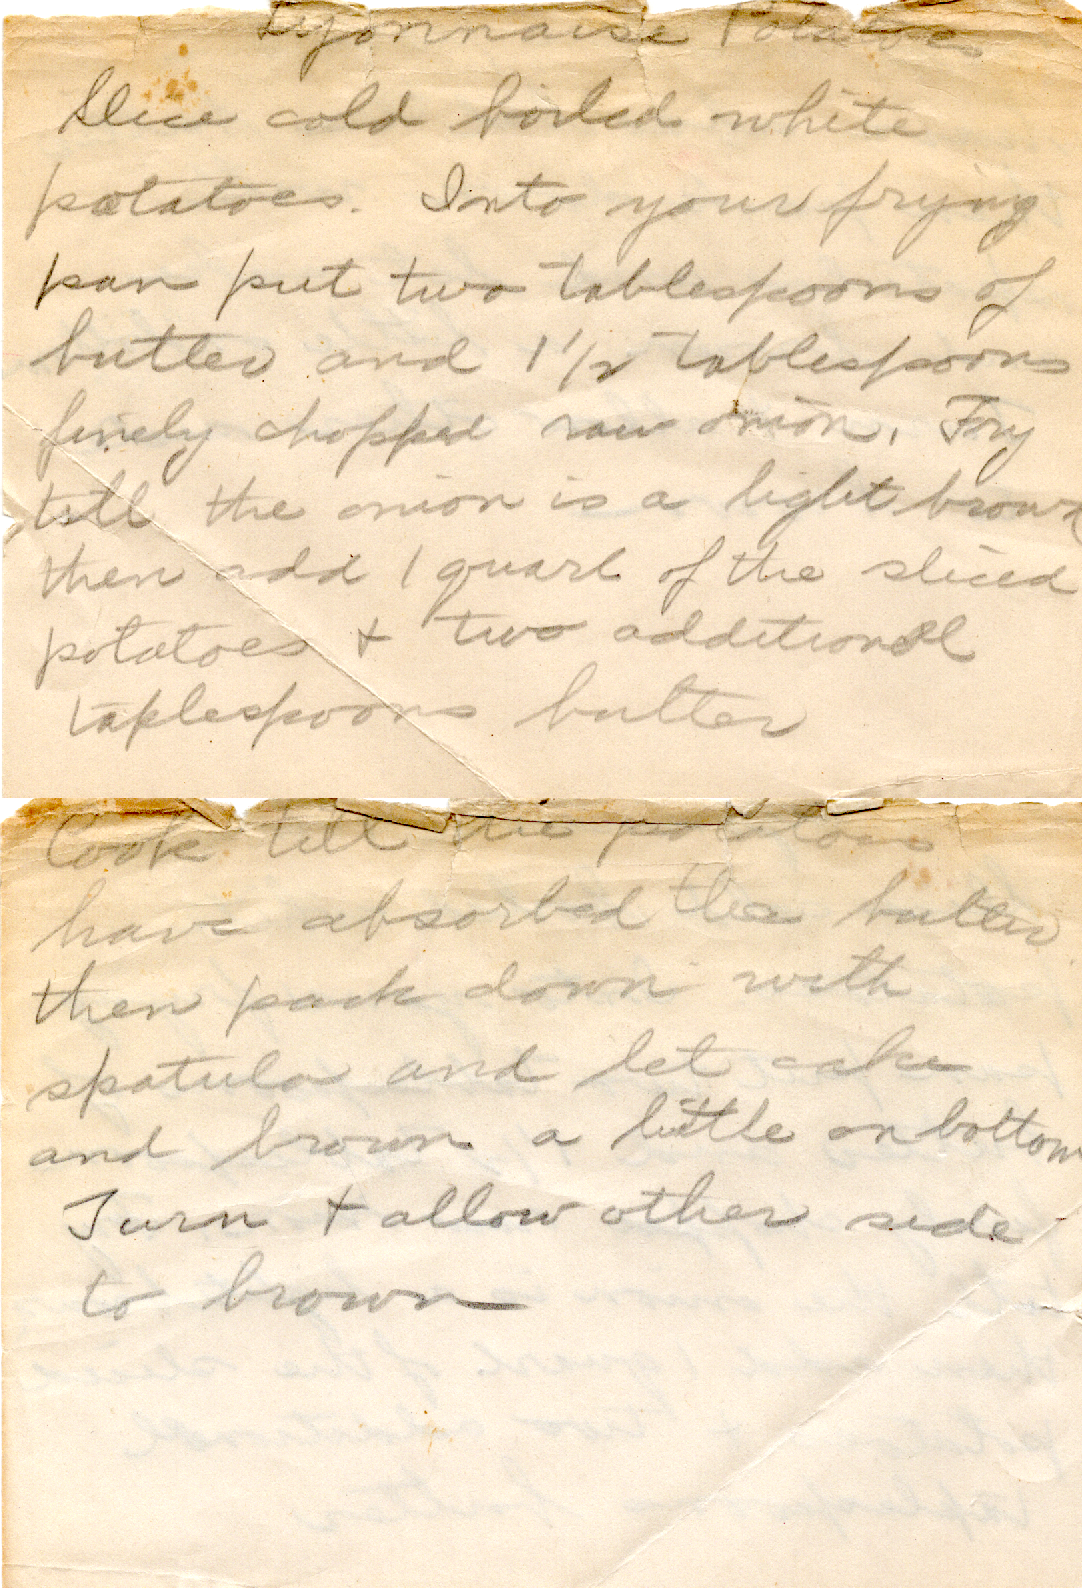 Lyonnaise Potatoes
Slice cold boiled white
potatoes. Into your frying
pan put two tablespoons of
butter and 1 1/2 tablespoons
finely chopped raw onion. Fry
till the onion is a light brown
then add 1 quart of the sliced
potatoes + two additional
taplespoons butter
Cook till the potatoes
have absorbed the butter
then pack down with
spatula and let cake
and brown a little on bottom
Turn + allow other side
to brown